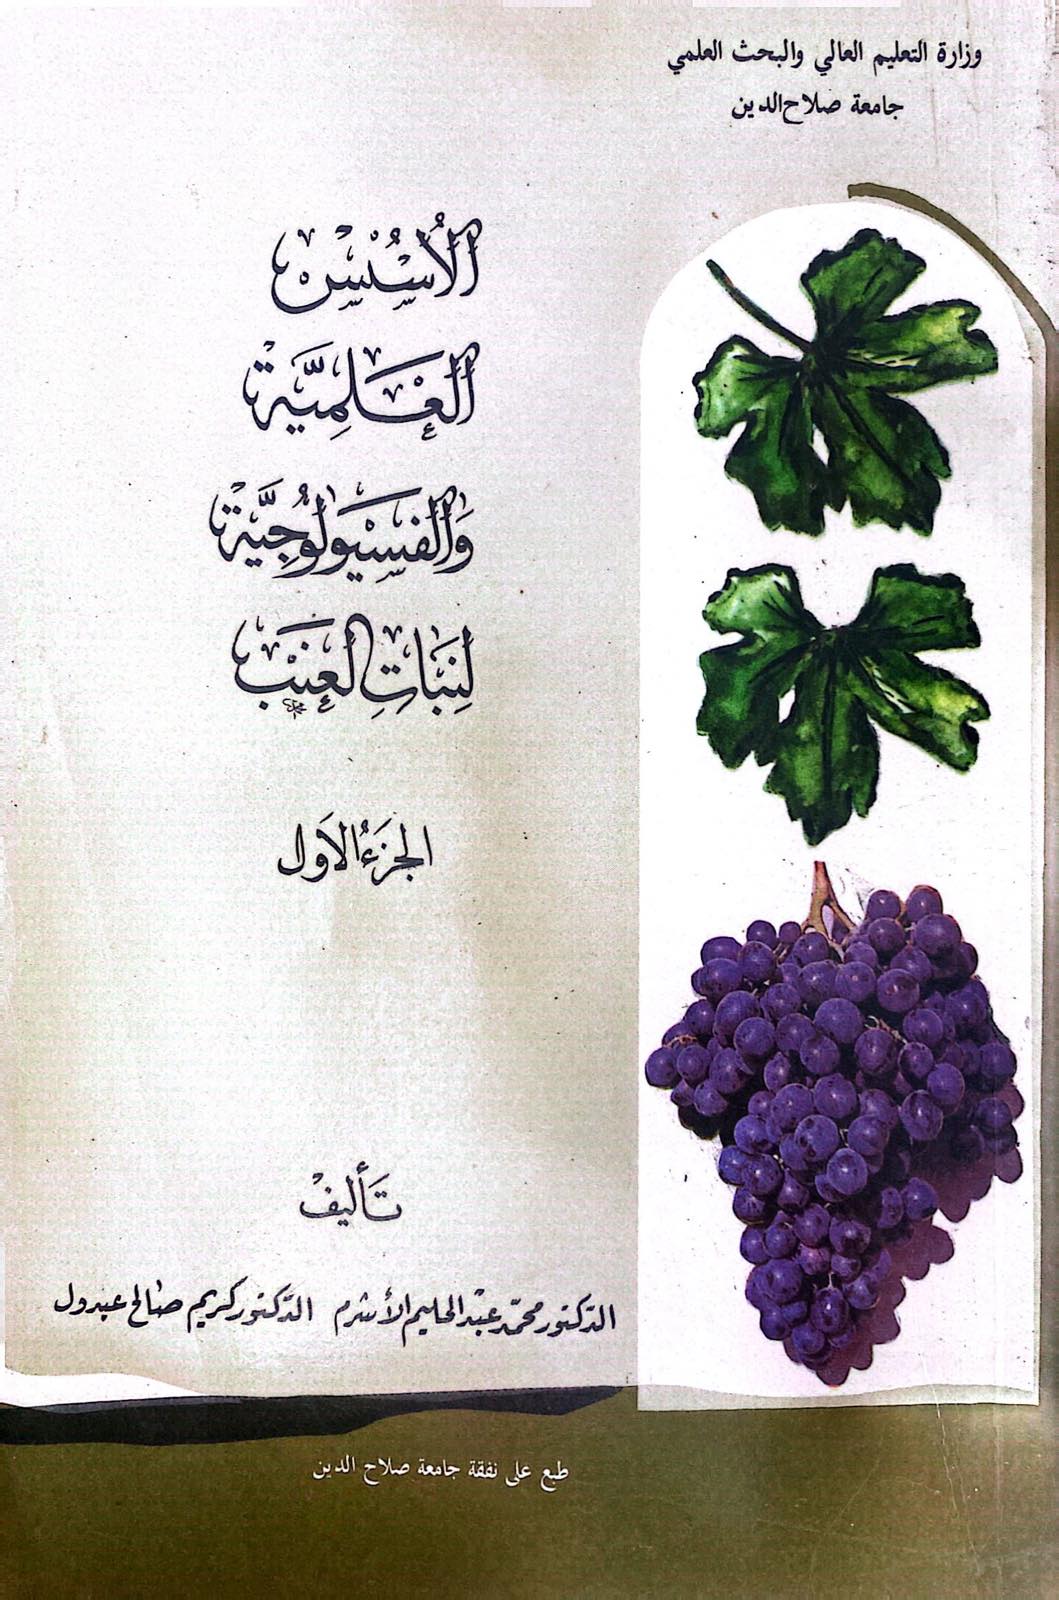 وزارة التعليم العالي والبحث العلمي
جامعة صلاح الدين
الأُسُسْ
العَلمِيَّة
وَالفسْيولوُجِيَّة
لِنبَاتِ العِنَبْ
الجزَءُ الاَول
تَأليفْ
الدّكتور محمّد عبْد الحليم الأشرم الدّكتور كريم صَالح عبدول
طبع على نفقة جامعة صلاح الدين